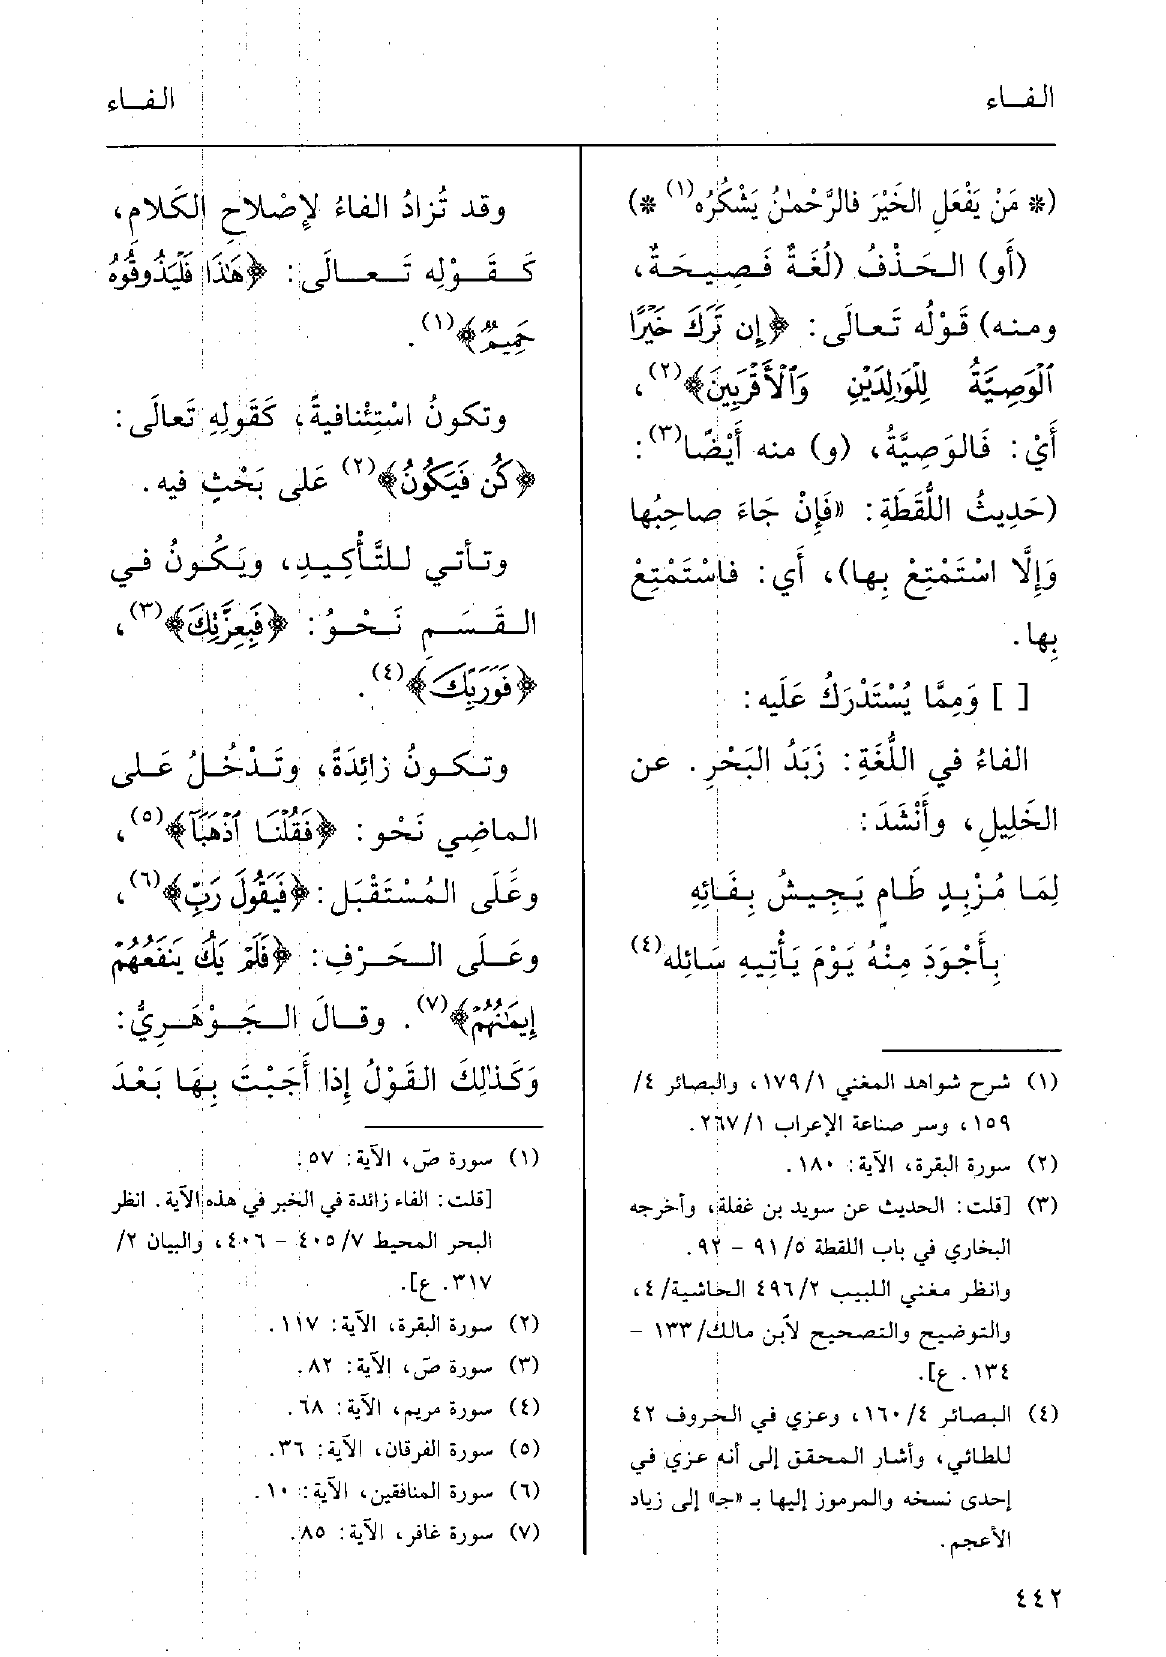 الفاء
الفاء
(* مَنْ يَفْعَلِ الخَيْرَ فالرَّحْمٰنُ يَشْكُرُه(١) *)
(أَو) الحَذْفُ (لُغَةٌ فَصِيحَةٌ،
ومنه) قَوْلُه تَعالَى: ﴿إِن تَرَكَ خَيْرًا
ٱلْوَصِيَّةُ لِلْوَٰلِدَيْنِ وَٱلْأَقْرَبِينَ﴾(٢)،
أَيْ: فَالوَصِيَّةُ، (و) منه أَيْضًا(٣):
(حَدِيثُ اللُّقَطَةِ: «فَإِنْ جَاءَ صاحِبُها
وَإِلَّا اسْتَمْتِعْ بِها)، أَي: فاسْتَمْتِعْ
بِها.
[ ] وَمِمَّا يُسْتَدْرَكُ عَلَيه:
الفاءُ في اللُّغَةِ: زَبَدُ البَحْرِ. عن
الخَلِيلِ، وأَنْشَدَ:
لِمَا مُزْبِدٍ طَامٍ يَجِيشُ بِفَائِهِ
بِأَجْوَدَ مِنْهُ يَوْمَ يَأْتِيهِ سَائِله(٤)
(١) شرح شواهد المغني ١/ ١٧٩، والبصائر ٤/
١٥٩، وسر صناعة الإعراب ١/ ٢٦٧.
(٢) سورة البقرة، الآية: ١٨٠.
(٣) [قلت: الحديث عن سويد بن غفلة، وأخرجه
البخاري في باب اللقطة ٥/ ٩١ - ٩٢.
وانظر مغني اللبيب ٢/ ٤٩٦ الحاشية/ ٤،
والتوضيح والتصحيح لأبن مالك/ ١٣٣ -
١٣٤. ع].
(٤) البصائر ٤/ ١٦٠، وعزي في الحروف ٤٢
للطائي، وأشار المحقق إلى أنه عزي في
إحدى نسخه والمرموز إليها بـ «جـ» إلى زياد
الأعجم.
وقد تُزادُ الفاءُ لإصْلاحِ الكَلامِ،
كَقَوْلِه تَعالَى: ﴿هَٰذَا فَلْيَذُوقُوهُ
حَمِيمٌ﴾(١).
وتكونُ اسْتِئْنافيةً، كَقَولِهِ تَعالَى:
﴿كُن فَيَكُونُ﴾(٢) عَلى بَحْثٍ فيه.
وتأتي للتَّأْكِيدِ، ويَكُونُ في
القَسَمِ نَحْوُ: ﴿فَبِعِزَّتِكَ﴾(٣)،
﴿فَوَرَبِّكَ﴾(٤).
وتكونُ زائِدَةً، وتَدْخُلُ عَلى
الماضِي نَحْو: ﴿فَقُلْنَا ٱذْهَبَآ﴾(٥)،
وعَلَى المُسْتَقْبَلِ: ﴿فَيَقُولَ رَبِّ﴾(٦)،
وعَلى الحَرْفِ: ﴿فَلَمْ يَكُ يَنفَعُهُمْ
إِيمَٰنُهُمْ﴾(٧). وقالَ الجَوْهَرِيُّ:
وَكَذٰلِكَ القَوْلُ إذا أَجَبْتَ بِهَا بَعْدَ
(١) سورة صۤ، الآية: ٥٧.
[قلت: الفاء زائدة في الخبر في هذه الآية. انظر
البحر المحيط ٧/ ٤٠٥ - ٤٠٦، والبيان ٢/
٣١٧. ع].
(٢) سورة البقرة، الآية: ١١٧.
(٣) سورة صۤ، الآية: ٨٢.
(٤) سورة مريم، الآية: ٦٨.
(٥) سورة الفرقان، الآية: ٣٦.
(٦) سورة المنافقين، الآية: ١٠.
(٧) سورة غافر، الآية: ٨٥.
٤٤٢